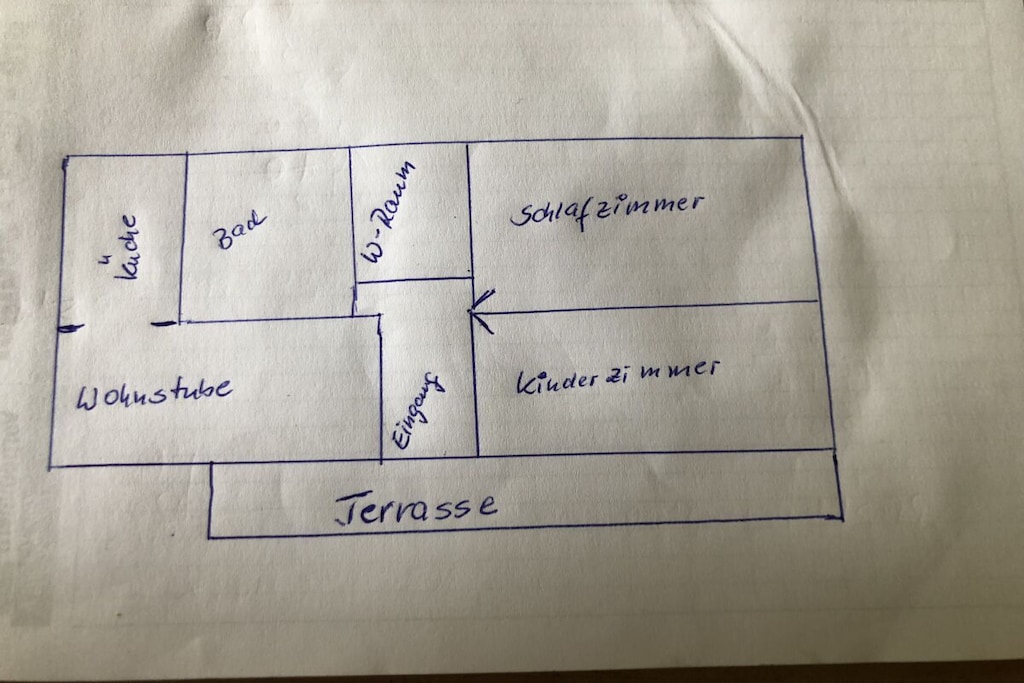 Küche
Bad
W-Raum
Schlafzimmer
Wohnstube
Eingang
Kinderzimmer
Terrasse